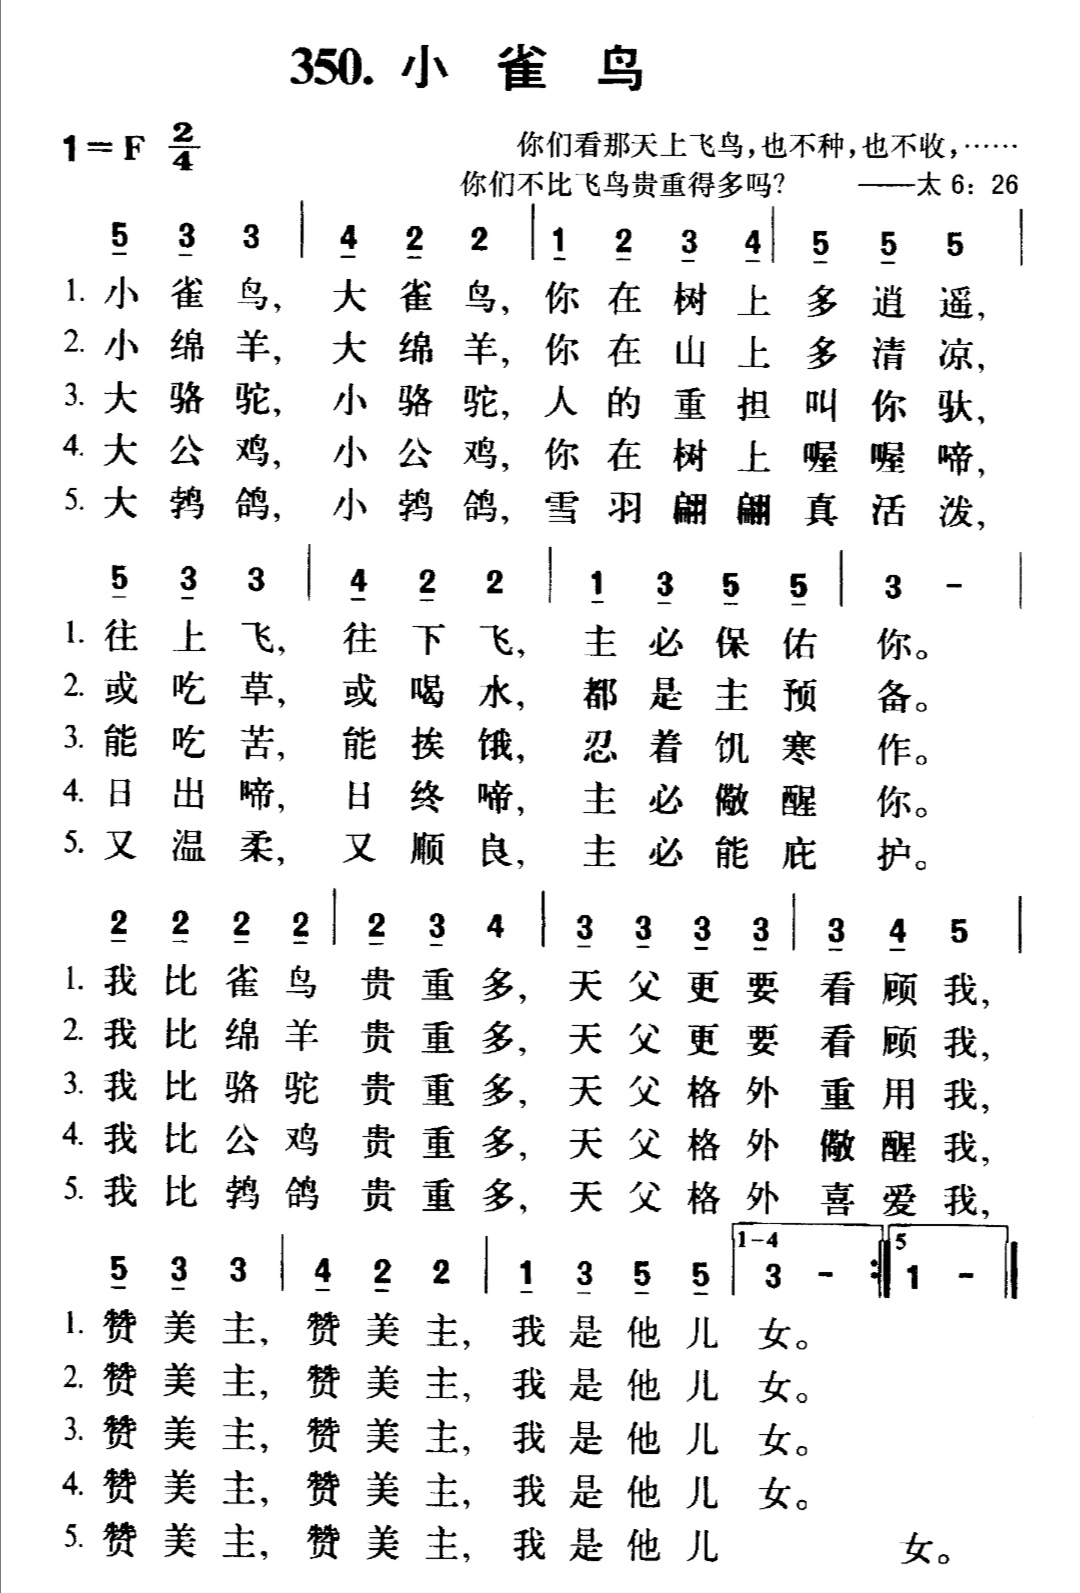 350. 小 雀 鸟
1=F 2/4
你们看那天上飞鸟,也不种,也不收,……
你们不比飞鸟贵重得多吗? ——太 6: 26
5 3 3 | 4 2 2 | 1 2 3 4 | 5 5 5 |
1. 小 雀 鸟, 大 雀 鸟, 你 在 树 上 多 逍 遥,
2. 小 绵 羊, 大 绵 羊, 你 在 山 上 多 清 凉,
3. 大 骆 驼, 小 骆 驼, 人 的 重 担 叫 你 驮,
4. 大 公 鸡, 小 公 鸡, 你 在 树 上 喔 喔 啼,
5. 大 鹁 鸽, 小 鹁 鸽, 雪 羽 翩 翩 真 活 泼,
5 3 3 | 4 2 2 | 1 3 5 5 | 3 - |
1. 往 上 飞, 往 下 飞, 主 必 保 佑 你。
2. 或 吃 草, 或 喝 水, 都 是 主 预 备。
3. 能 吃 苦, 能 挨 饿, 忍 着 饥 寒 作。
4. 日 出 啼, 日 终 啼, 主 必 儆 醒 你。
5. 又 温 柔, 又 顺 良, 主 必 能 庇 护。
2 2 2 2 | 2 3 4 | 3 3 3 3 | 3 4 5 |
1. 我 比 雀 鸟 贵 重 多, 天 父 更 要 看 顾 我,
2. 我 比 绵 羊 贵 重 多, 天 父 更 要 看 顾 我,
3. 我 比 骆 驼 贵 重 多, 天 父 格 外 重 用 我,
4. 我 比 公 鸡 贵 重 多, 天 父 格 外 儆 醒 我,
5. 我 比 鹁 鸽 贵 重 多, 天 父 格 外 喜 爱 我,
1-4 5
5 3 3 | 4 2 2 | 1 3 5 5 | 3 - :‖ 1 - ‖
1. 赞 美 主, 赞 美 主, 我 是 他 儿 女。
2. 赞 美 主, 赞 美 主, 我 是 他 儿 女。
3. 赞 美 主, 赞 美 主, 我 是 他 儿 女。
4. 赞 美 主, 赞 美 主, 我 是 他 儿 女。
5. 赞 美 主, 赞 美 主, 我 是 他 儿 女。